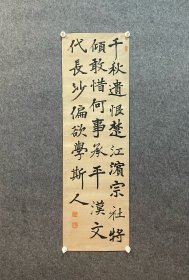 千秋遺恨楚江濱宗社將
傾敢惜何事承平漢文
代長沙偏欲學斯人